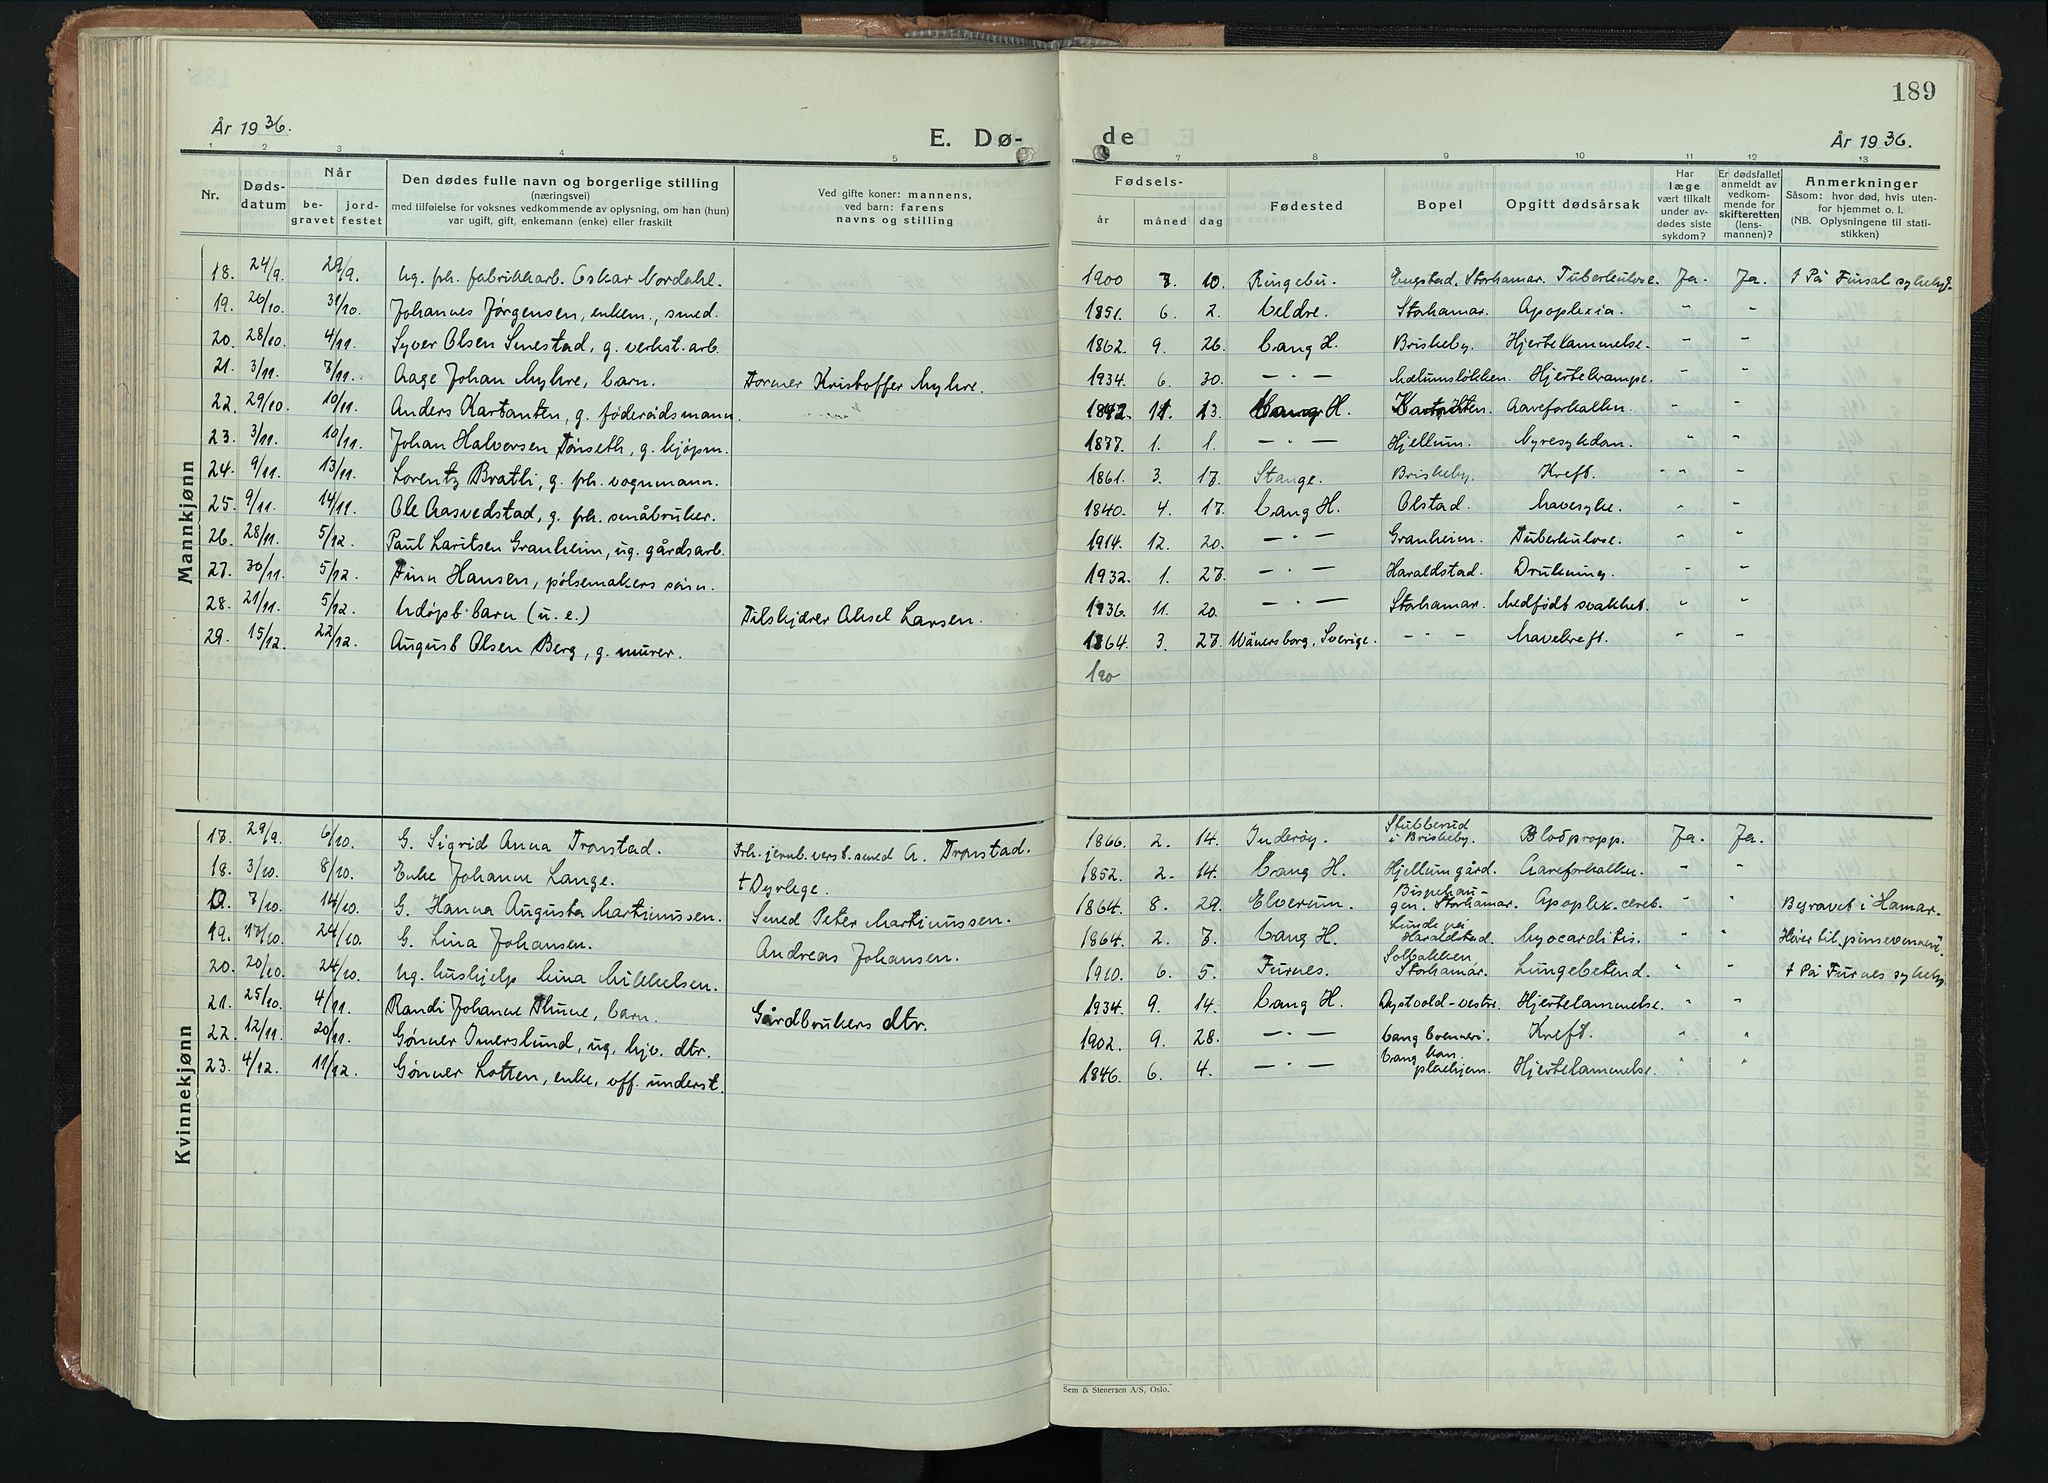 189
År 1936.
E. Dø-
de
År 1936.
1 2 3 4 5
7 8 9 10 11 12 13
Nr.
Døds-
datum
Når
be-
gravet
jord-
festet
Den dødes fulle navn og borgerlige stilling
(næringsvei)
med tilføielse for voksnes vedkommende av oplysning, om han (hun)
var ugift, gift, enkemann (enke) eller fraskilt
Ved gifte koner: mannens,
ved barn: farens
navns og stilling
Fødsels-
år
måned
dag
Fødested
Bopel
Opgitt dødsårsak
Har
læge
vært tilkalt
under av-
dødes siste
sykdom?
Er dødsfallet
anmeldt av
vedkom-
mende for
skifteretten
(lens-
mannen)?
Anmerkninger
Såsom: hvor død, hvis uten-
for hjemmet o. l.
(NB. Oplysningene til stati-
stikken)
Mannkjønn
18. 24/9. 29/9. Ug. fh. fabrikkarb. Oskar Nordahl. 1900 7 10. Ringebu. Engstad, Storhamar. Tuberkulose. Ja. Ja. † På Finsal sykehj.
19. 26/10. 31/10. Johannes Jørgensen, enkem., smed. 1851. 6. 2. Veldre. Storhamar. Apoplexia. " "
20. 28/10 4/11. Syver Olsen Smestad, g. verkst. arb. 1862. 9. 26. Vang H. Briskeby. Hjertelammelse. " "
21. 3/11. 7/11. Aage Johan Myhre, barn. Tormer Kristoffer Myhre. 1934. 6. 30. — " — Mælumsløkken. Hjertekrampe. " "
22. 29/10. 10/11. Anders Kartanten, g. føderådsmann. 11. 13. Vang H. Aareforkalkn. " "
23. 3/11. 10/11. Johan Halvorsen Tønseth, g. kjøpm. 1877. 1. 1. — " — Hjellum. Nyresykdom. " "
24. 9/11. 13/11. Lorentz Bratli, g. fh. vognmann. 1861. 3. 17. Stange. Briskeby. Kreft. " "
25. 9/11. 14/11. Ole Aasvedstad, g. fh. småbruker. 1840. 4. 17. Vang H. Olstad. Mavesyke. " "
26. 28/11. 5/12. Paul Lauritsen Granheim, ug. gårdsarb. 1914. 12. 20. — " — Granheim. Tuberkulose. " "
27. 30/11. 5/12. Finn Hansen, pølsemakers sønn. 1932. 1. 27. — " — Haraldstad. Drukning. " "
28. 21/11. 5/12. Udøpt barn (u. e.) Tilskjærer Aksel Larsen. 1936. 11. 20. — " — Storhamar. Medfødt svakhet. " "
29. 15/12. 22/12. August Olsen Berg, g. murer. 1864. 3. 27. Wänersborg, Sverige. — " — Mavekreft. " "
190
Kvinnekjønn
17. 29/9. 6/10. G. Sigrid Anna Tronstad. Frh. jernb. verkst. smed A. Tronstad. 1866. 2. 14. Inderøy. Stubberud i Briskeby. Blodpropp. Ja. Ja.
18. 3/10. 8/10. Enke Johanne Lange. † Dyrlege. 1852. 2. 14. Vang H. Hjellum gård. Aareforkalkn. " "
D. 7/10. 14/10. G. Hanna Augusta Martinussen. Smed Peter Martinussen. 1864. 8. 29. Elverum. Bispehau-gen, Storhamar. Apoplex. cereb. " " Begravet i Hamar.
19. 17/10. 24/10. G. Lina Johansen. Andreas Johansen. 1864. 2. 7. Vang H. Haraldstad. Myocarditis. " " Hører til pinsevennene.
20. 20/10. 24/10. Ug. hushjelp Mina Mikkelsen. 1910. 6. 5. Furnes. Solbakken, Storhamar. Lungebetend. " " † På Furnes sykehj.
21. 25/10. 4/11. Randi Johanne Thune, barn. Gårdbrukers dtr. 1934. 9. 14. Vang H. Dystvold-vestre. Hjertelammelse. " "
22. 12/11. 20/11. Gønner Imerslund, ug. hjv. dtr. 1902. 9. 28. — " — Kreft. " "
23. 4/12. 11/12. Gønner Lotten, enke, off. underst. 1846. 6. 4. — " — Vang kom. pleiehjem. Hjertelammelse. " "
Sem & Stenersen A/S, Oslo.